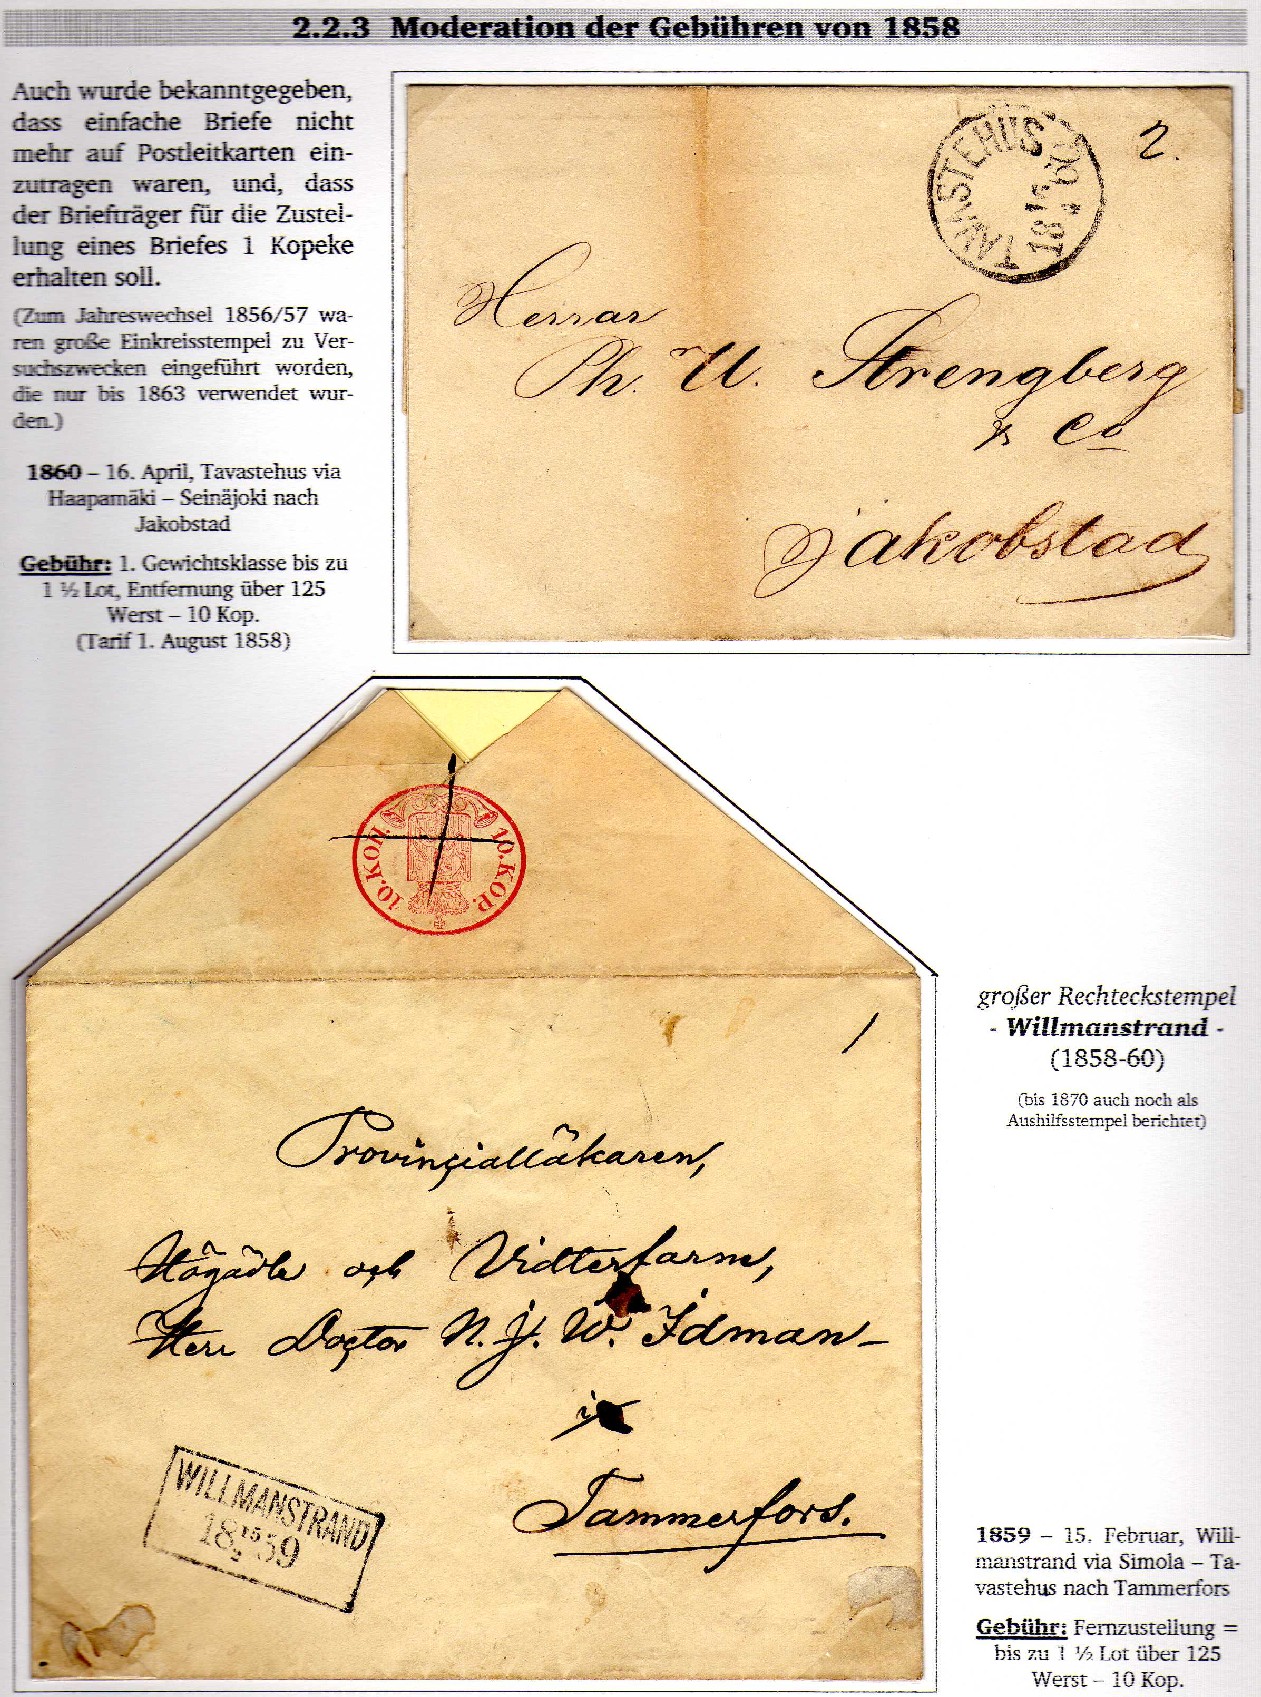 2.2.3 Moderation der Gebühren von 1858
Auch wurde bekanntgegeben,
dass einfache Briefe nicht
mehr auf Postleitkarten ein-
zutragen waren, und, dass
der Briefträger für die Zustel-
lung eines Briefes 1 Kopeke
erhalten soll.
(Zum Jahreswechsel 1856/57 wa-
ren große Einkreisstempel zu Ver-
suchszwecken eingeführt worden,
die nur bis 1863 verwendet wur-
den.)
1860 – 16. April, Tavastehus via
Haapamäki – Seinäjoki nach
Jakobstad
Gebühr: 1. Gewichtsklasse bis zu
1 ½ Lot, Entfernung über 125
Werst – 10 Kop.
(Tarif 1. August 1858)
TAVASTEHUS
2.
Herrar
Ph. U. Strengberg
& Co
Jakobstad
10.КОП.
10.KOP.
1
Provinzialläkaren,
Högädle och Vidtterfarne,
Herr Doctor N. J. W. Idman
i
Tammerfors.
WILLMANSTRAND
18 15/2 59
großer Rechteckstempel
- Willmanstrand -
(1858-60)
(bis 1870 auch noch als
Aushilfsstempel berichtet)
1859 – 15. Februar, Will-
manstrand via Simola – Ta-
vastehus nach Tammerfors
Gebühr: Fernzustellung =
bis zu 1 ½ Lot über 125
Werst – 10 Kop.